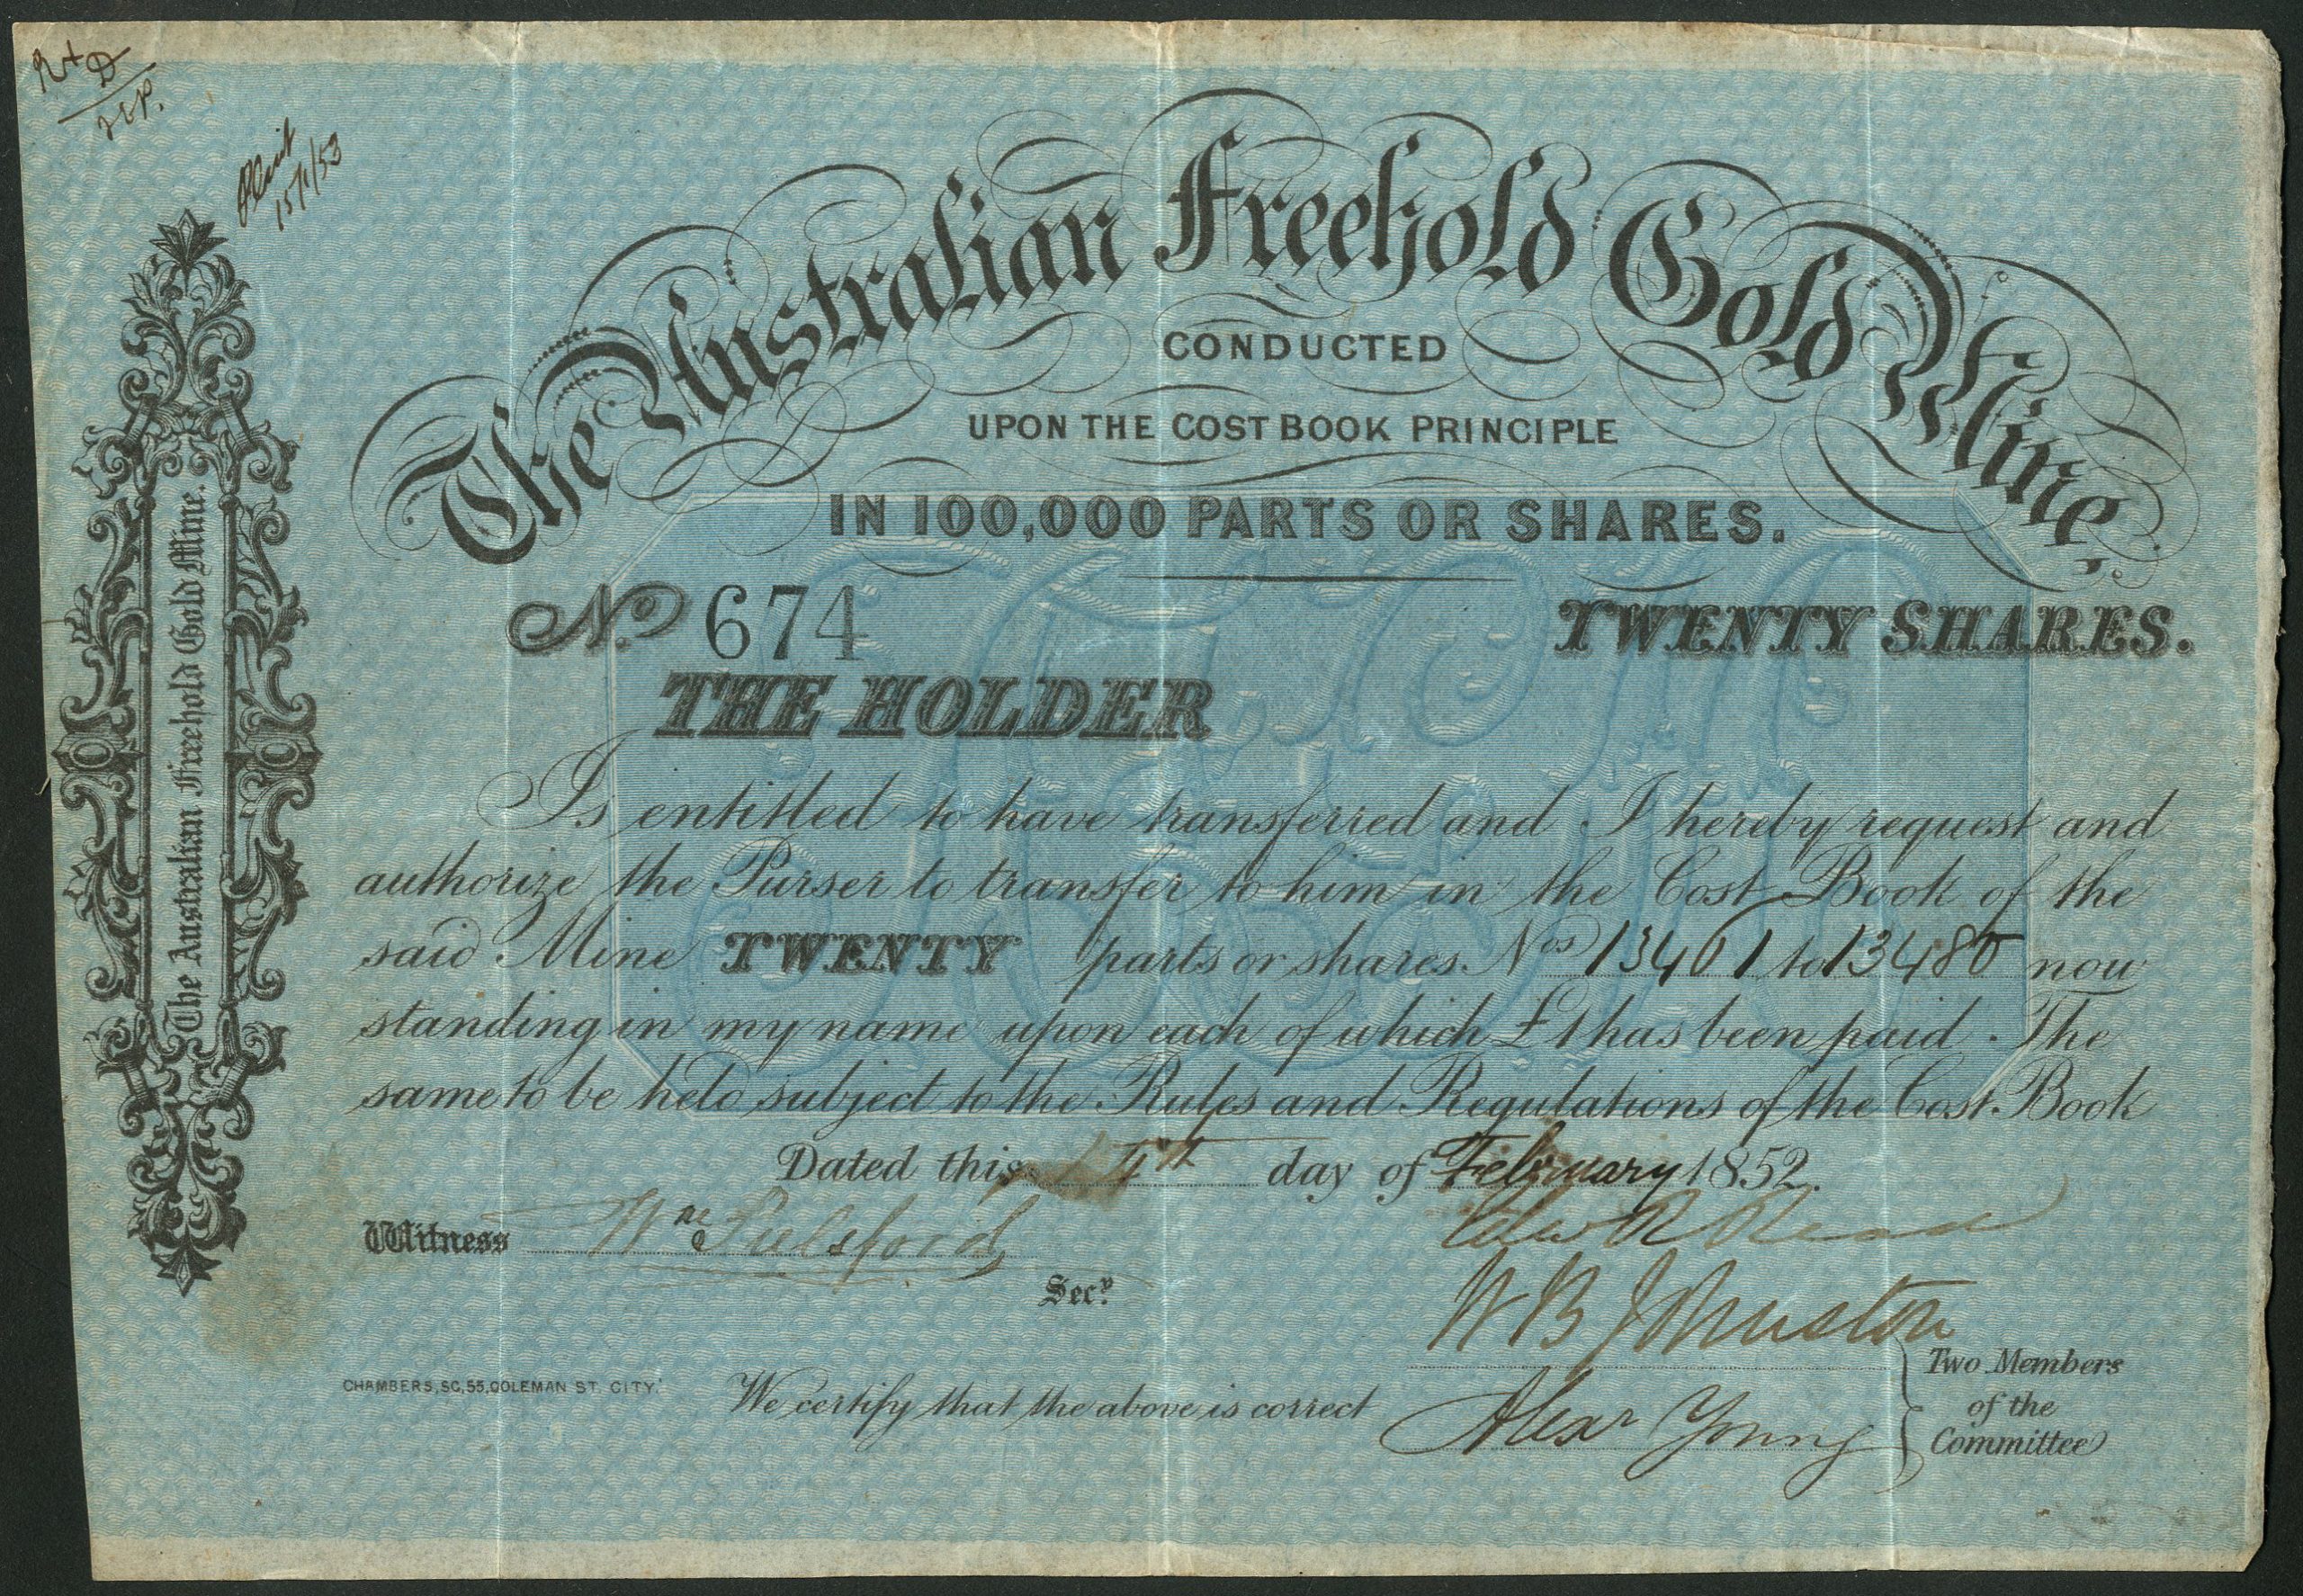 15/1/53
The Australian Freehold Gold Mine.
The Australian Freehold Gold Mine,
CONDUCTED
UPON THE COST BOOK PRINCIPLE
IN 100,000 PARTS OR SHARES.
No. 674
TWENTY SHARES.
THE HOLDER
Is entitled to have transferred and I hereby request and
authorize the Purser to transfer to him in the Cost Book of the
said Mine TWENTY parts or shares. Nos 13461 to 13480 now
standing in my name upon each of which £1 has been paid. The
same to be held subject to the Rules and Regulations of the Cost Book
Dated this day of February 1852.
Witness Wm Pulsford
Secy.
W B Johnston
Alexr Young
Two Members
of the
Committee
We certify that the above is correct
CHAMBERS, SC, 55, COLEMAN ST. CITY.